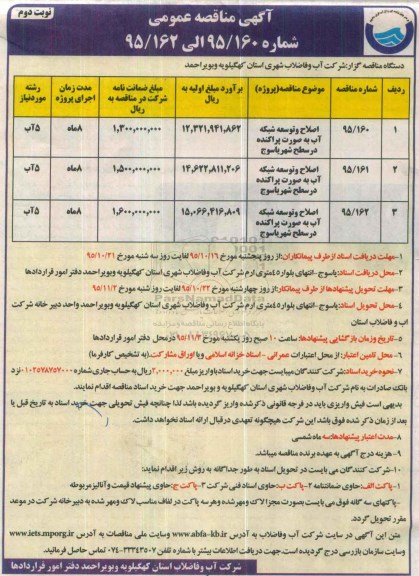 نوبت دوم
آگهی مناقصه عمومی
شماره ۹۵/۱۶۰ الی ۹۵/۱۶۲
دستگاه مناقصه گزار: شرکت آب وفاضلاب شهری استان کهگیلویه وبویراحمد
ردیف شماره مناقصه موضوع مناقصه(پروژه) برآورد مبلغ اولیه به ریال مبلغ ضمانت نامه شرکت در مناقصه به ریال مدت زمان اجرای پروژه رشته موردنیاز
۱ ۹۵/۱۶۰ اصلاح وتوسعه شبکه آب به صورت پراکنده درسطح شهریاسوج ۱۲,۳۲۱,۹۴۱,۸۶۲ ۱,۳۰۰,۰۰۰,۰۰۰ ۸ماه ۵آب
۲ ۹۵/۱۶۱ اصلاح وتوسعه شبکه آب به صورت پراکنده درسطح شهریاسوج ۱۴,۶۲۲,۸۱۱,۲۰۶ ۱,۵۰۰,۰۰۰,۰۰۰ ۸ماه ۵آب
۳ ۹۵/۱۶۲ اصلاح وتوسعه شبکه آب به صورت پراکنده درسطح شهریاسوج ۱۵,۰۶۶,۴۱۶,۸۰۹ ۱,۶۰۰,۰۰۰,۰۰۰ ۸ماه ۵آب
۱-مهلت دریافت اسناد ازطرف پیمانکاران:از روز پنجشنبه مورخ ۹۵/۱۰/۱۶ لغایت روز سه شنبه مورخ ۹۵/۱۰/۲۱
۲-محل دریافت اسناد: یاسوج-انتهای بلوار ۴۵متری ارم شرکت آب وفاضلاب شهری استان کهگیلویه وبویراحمد دفتر امور قراردادها
۳-مهلت تحویل پیشنهادها از طرف پیمانکار:از روز چهارشنبه مورخ ۹۵/۱۰/۲۲ لغایت روز شنبه مورخ ۹۵/۱۱/۲
۴-محل تحویل اسناد: یاسوج-انتهای بلوار ۴۵متری ارم شرکت آب وفاضلاب شهری استان کهگیلویه وبویراحمد واحد دبیر خانه شرکت
اب و فاضلاب استان
۵-تاریخ وزمان بازگشایی پیشنهادها: ساعت ۱۰ صبح روز یکشنبه مورخ ۹۵/۱۱/۳ درمحل دفتر امور قراردادها
۶-محل تامین اعتبار: از محل اعتبارات عمرانی - اسناد خزانه اسلامی ویا اوراق مشارکت.(به تشخیص کارفرما)
۷-نحوه خرید اسناد:شرکت کنندگان میبایست جهت خرید اسناد باواریز مبلغ ۲,۰۰۰,۰۰۰ ریال به حساب جاری شماره ۰۱۰۲۵۷۸۷۵۷۰۰۰ نزد
بانک صادرات به نام شرکت آب وفاضلاب شهری استان کهگیلویه و بویراحمد جهت خرید اسناد مناقصه اقدام نمایند.
بدیهی است فیش واریزی باید در فرجه قانونی ذکرشده واریز گردیده باشد لذا چنانچه فیش تحویلی جهت خرید اسناد به تاریخ قبل یا
بعد از زمان ذکر شده فوق باشد این شرکت هیچگونه تعهدی درقبال ارائه اسناد نخواهد داشت.
۸-مدت اعتبار پیشنهادها:سه ماه شمسی
۹-هزینه درج آگهی به عهده برنده مناقصه میباشد.
۱۰-شرکت کنندگان می بایست در تحویل اسناد به طور جداگانه به روش زیر اقدام نمایند:
۱-پاکت الف:حاوی ضمانتنامه ۲-پاکت ب:حاوی اسناد فنی شرکت ۳-پاکت ج:حاوی پیشنهاد قیمت وآنالیز مربوطه
-پاکتهای سه گانه فوق می بایست بصورت مجزا لاک ومهرشده وهرسه پاکت در لفاف مناسب لاک ومهر شده به دبیرخانه شرکت در موعد
مقرر تحویل گردد.
متن این آگهی در سایت شرکت آب وفاضلاب به آدرس www.abfa-kb.ir وسایت ملی مناقصات به آدرس www.iets.mporg.ir
وسایت سازمان بازرسی درج گردیده است.جهت دریافت اطلاعات بیشتر با شماره تلفن ۰۷۴-۳۳۳۴۳۵۰۷ تماس حاصل فرمائید.
شرکت آب وفاضلاب استان کهگیلویه وبویراحمد دفتر امور قراردادها